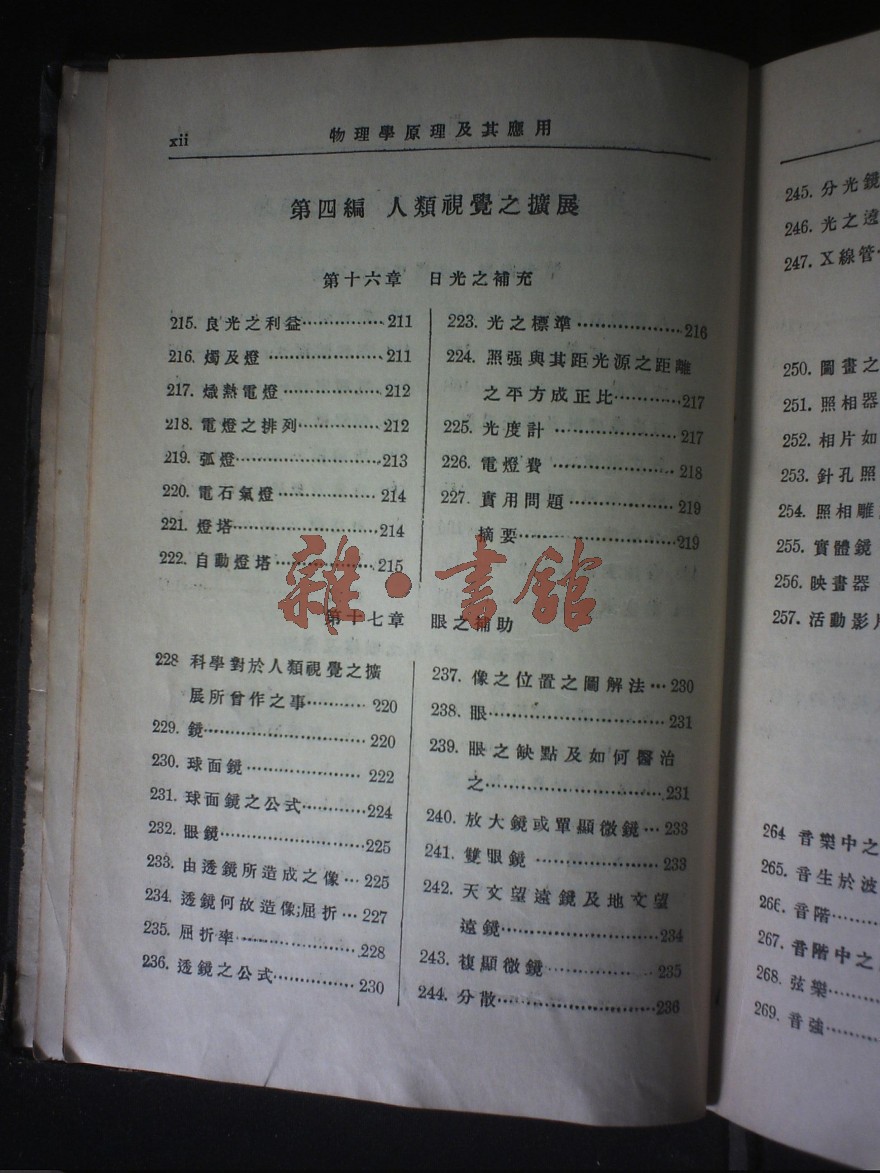 xii 物理學原理及其應用
第四編 人類視覺之擴展
第十六章 日光之補充
215. 良光之利益……………211
216. 燭及燈……………211
217. 熾熱電燈……………212
218. 電燈之排列……………212
219. 弧燈……………213
220. 電石氣燈……………214
221. 燈塔……………214
222. 自動燈塔……………215
223. 光之標準……………216
224. 照强與其距光源之距離
之平方成正比…………217
225. 光度計……………217
226. 電燈費……………218
227. 實用問題……………219
摘要……………219
雜·書館
第十七章 眼之補助
228 科學對於人類視覺之擴
展所曾作之事………220
229. 鏡……………220
230. 球面鏡……………222
231. 球面鏡之公式…………224
232. 眼鏡……………225
233. 由透鏡所造成之像…225
234. 透鏡何故造像;屈折…227
235. 屈折率……………228
236. 透鏡之公式…………230
237. 像之位置之圖解法…230
238. 眼……………231
239. 眼之缺點及如何醫治
之……………231
240. 放大鏡或單顯微鏡…233
241. 雙眼鏡……………233
242. 天文望遠鏡及地文望
遠鏡……………234
243. 複顯微鏡……………235
244. 分散……………236
245. 分光鏡
246. 光之遠
247. X線管
250. 圖畫之
251. 照相器
252. 相片如
253. 針孔照
254. 照相雕
255. 實體鏡
256. 映畫器
257. 活動影片
264 音樂中之
265. 音生於波
266. 音階………
267. 音階中之
268. 弦樂………
269. 音強………